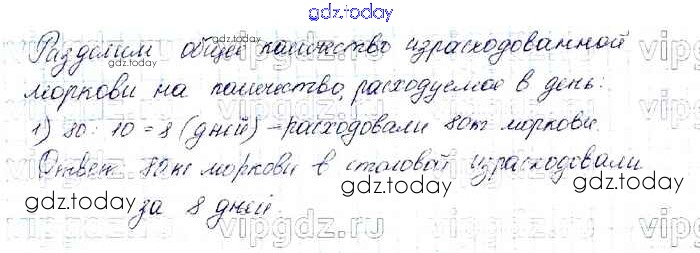 gdz.today
Разделим общее количество израсходованной
моркови на количество, расходуемое в день:
1) 80 : 10 = 8 (дней) - расходовали 80 кг моркови.
Ответ: 80 кг моркови в столовой израсходовали
за 8 дней.
gdz.today
gdz.today
gdz.today
gdz.today
gdz.today
gdz.today
gdz.today
vipgdz.ru
vipgdz.ru
vipgdz.ru